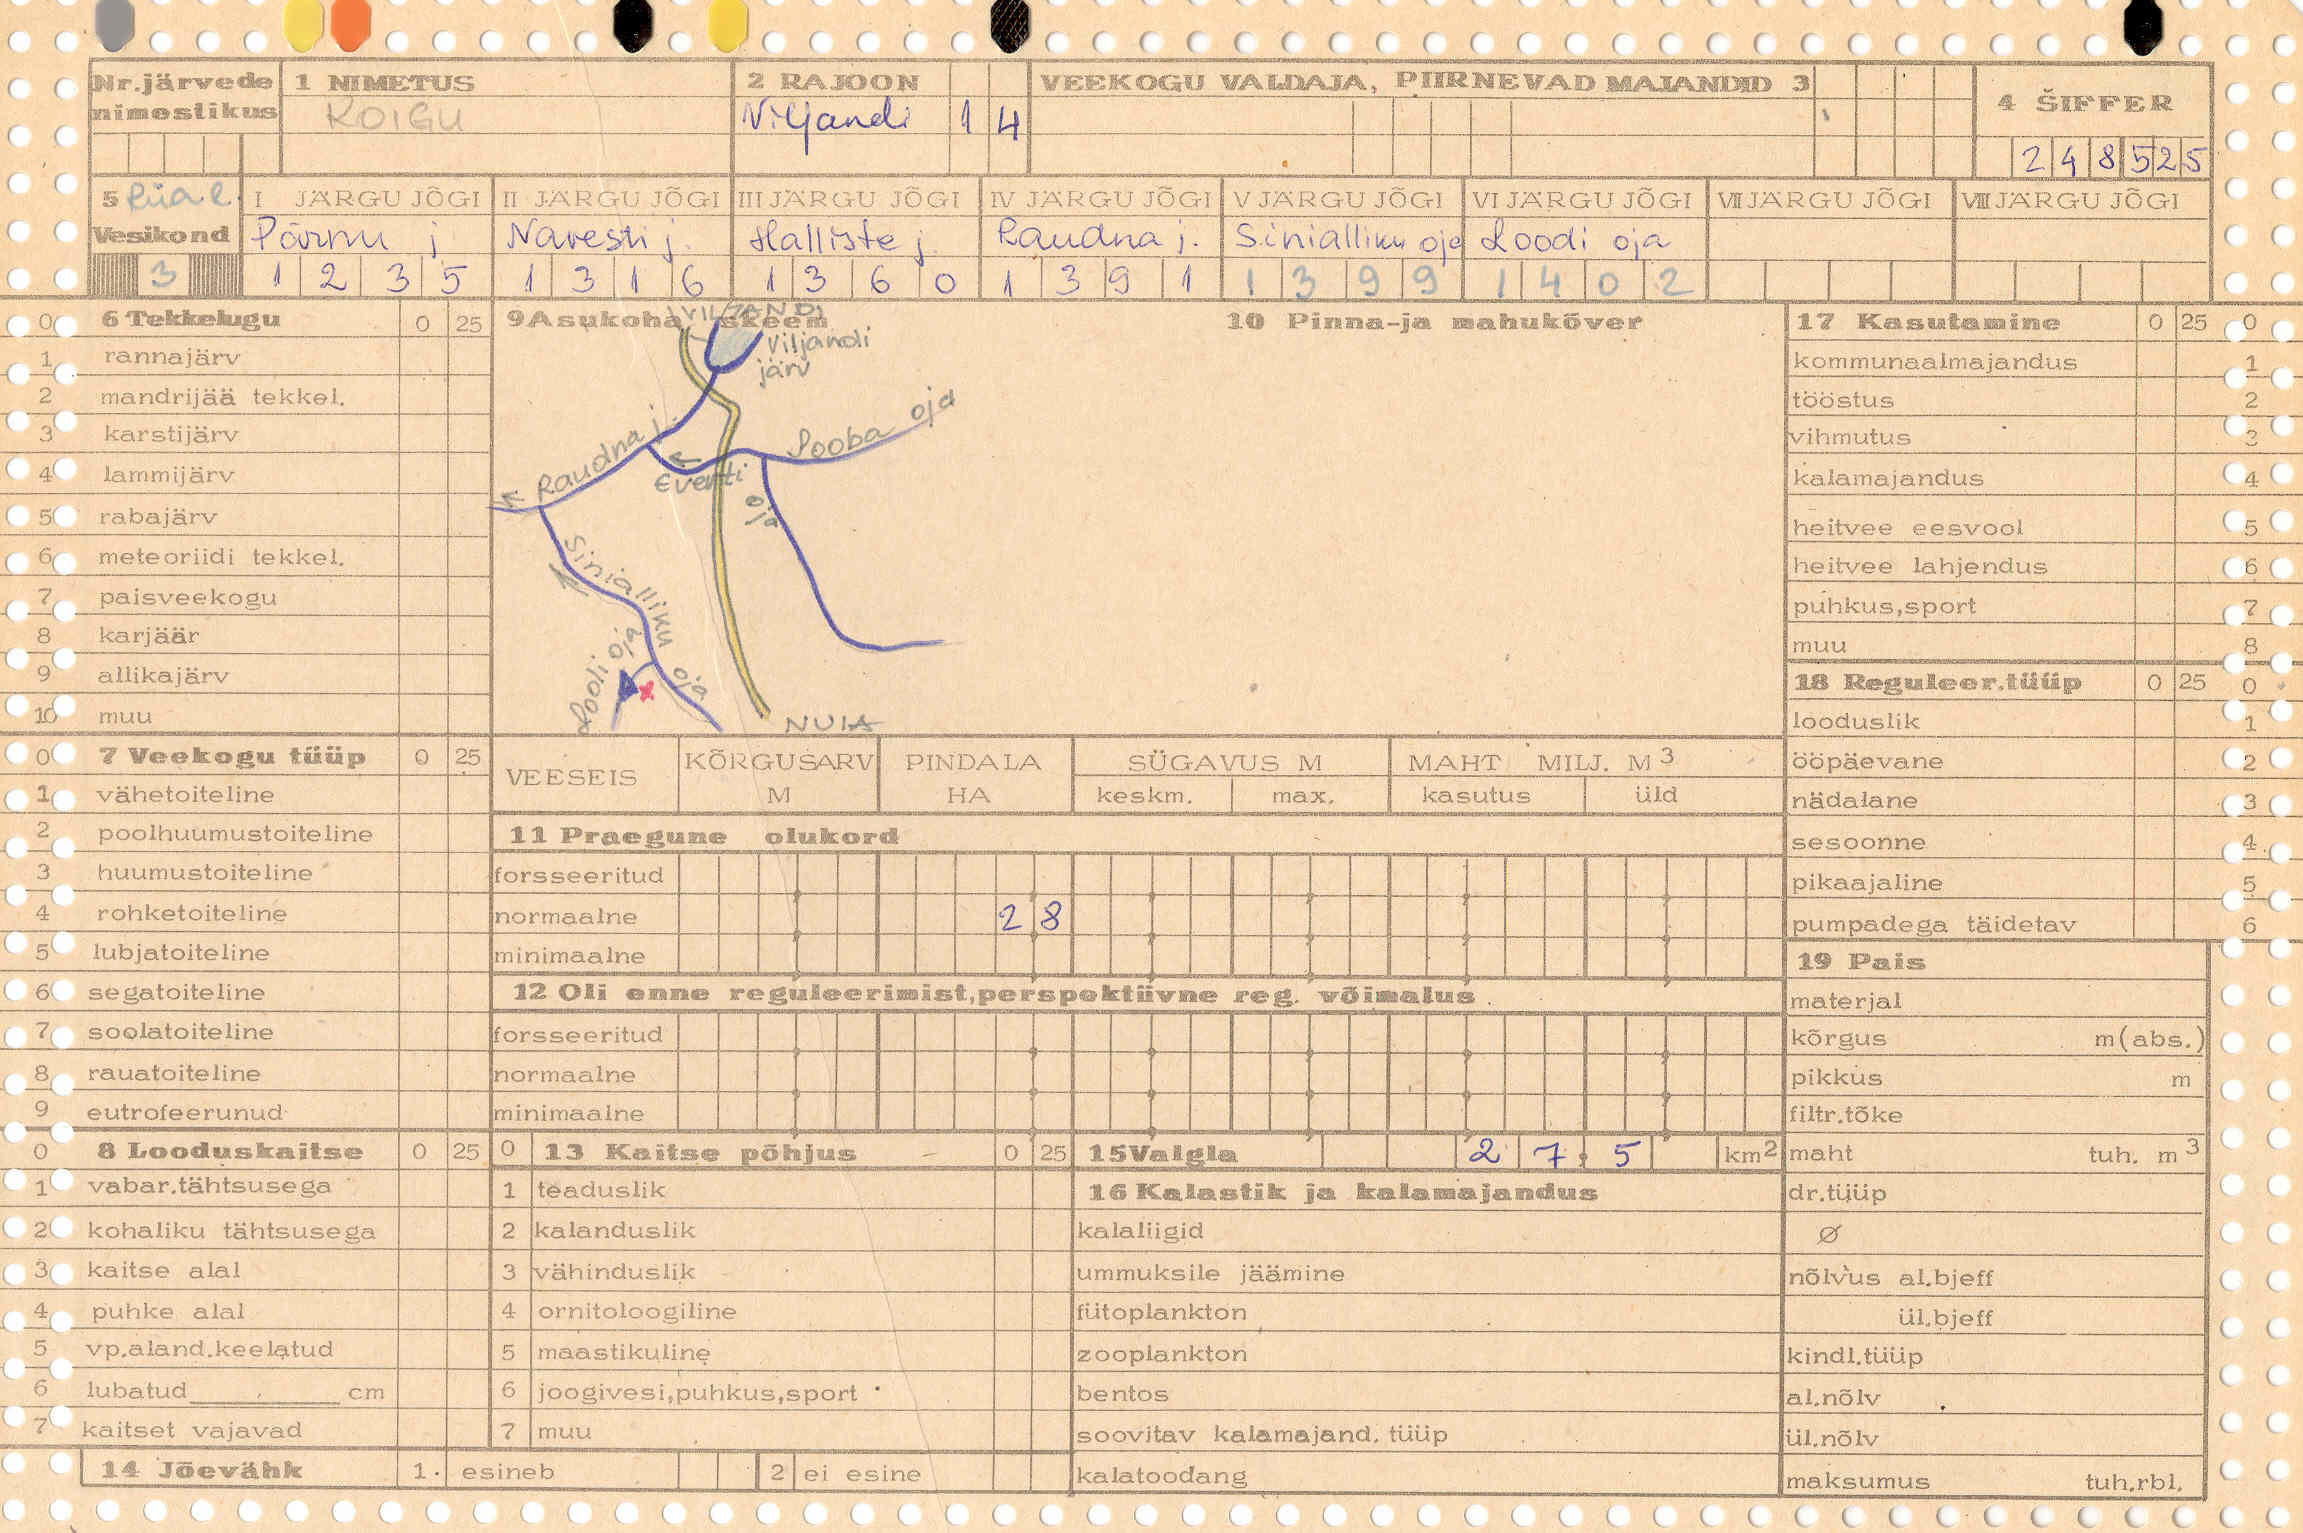 Nr.järvede nimestikus
1 NIMETUS
KOIGU
2 RAJOON
Viljandi 1 4
VEEKOGU VALDAJA, PIIRNEVAD MAJANDID 3
4 ŠIFFER
2 4 8 5 2 5
5
Vesikond
3
I JÄRGU JÕGI
Pärnu j
1 2 3 5
II JÄRGU JÕGI
Navesti j.
1 3 1 6
III JÄRGU JÕGI
Halliste j.
1 3 6 0
IV JÄRGU JÕGI
Raudna j.
1 3 9 1
V JÄRGU JÕGI
Sinialliku oja
1 3 9 9
VI JÄRGU JÕGI
Loodi oja
1 4 0 2
VII JÄRGU JÕGI
VIII JÄRGU JÕGI
0 6 Tekkelugu 0 25
1 rannajärv
2 mandrijää tekkel.
3 karstijärv
4 lammijärv
5 rabajärv
6 meteoriidi tekkel.
7 paisveekogu
8 karjäär
9 allikajärv
10 muu
0 7 Veekogu tüüp 0 25
1 vähetoiteline
2 poolhuumustoiteline
3 huumustoiteline
4 rohketoiteline
5 lubjatoiteline
6 segatoiteline
7 soolatoiteline
8 rauatoiteline
9 eutrofeerunud
0 8 Looduskaitse 0 25
1 vabar.tähtsusega
2 kohaliku tähtsusega
3 kaitse alal
4 puhke alal
5 vp.aland.keelatud
6 lubatud cm
7 kaitset vajavad
14 Jõevähk 1. esineb 2 ei esine
9 Asukoha skeem
VILJANDI
Viljandi
järv
Raudna j.
Everti oja
Sooba oja
Sinialliku oja
Looli oja
NUIA
10 Pinna-ja mahukõver
VEESEIS
KÕRGUSARV M
PINDALA HA
SÜGAVUS M
keskm. max.
MAHT MILJ. M3
kasutus üld
11 Praegune olukord
forsseeritud
normaalne 2 8
minimaalne
12 Oli enne reguleerimist,perspektiivne reg. võimalus
forsseeritud
normaalne
minimaalne
0 13 Kaitse põhjus 0 25
1 teaduslik
2 kalanduslik
3 vähinduslik
4 ornitoloogiline
5 maastikuline
6 joogivesi,puhkus,sport
7 muu
15 Valgla 2 7, 5 km2
16 Kalastik ja kalamajandus
kalaliigid
ummuksile jäämine
fütoplankton
zooplankton
bentos
soovitav kalamajand. tüüp
kalatoodang
17 Kasutamine 0 25 0
kommunaalmajandus 1
tööstus 2
vihmutus 3
kalamajandus 4
heitvee eesvool 5
heitvee lahjendus 6
puhkus,sport 7
muu 8
18 Reguleer.tüüp 0 25 0
looduslik 1
ööpäevane 2
nädalane 3
sesoonne 4
pikaajaline 5
pumpadega täidetav 6
19 Pais
materjal
kõrgus m(abs.)
pikkus m
filtr.tõke
maht tuh. m3
dr.tüüp
Ø
nõlvus al.bjeff
ül.bjeff
kindl.tüüp
al.nõlv
ül.nõlv
maksumus tuh.rbl.